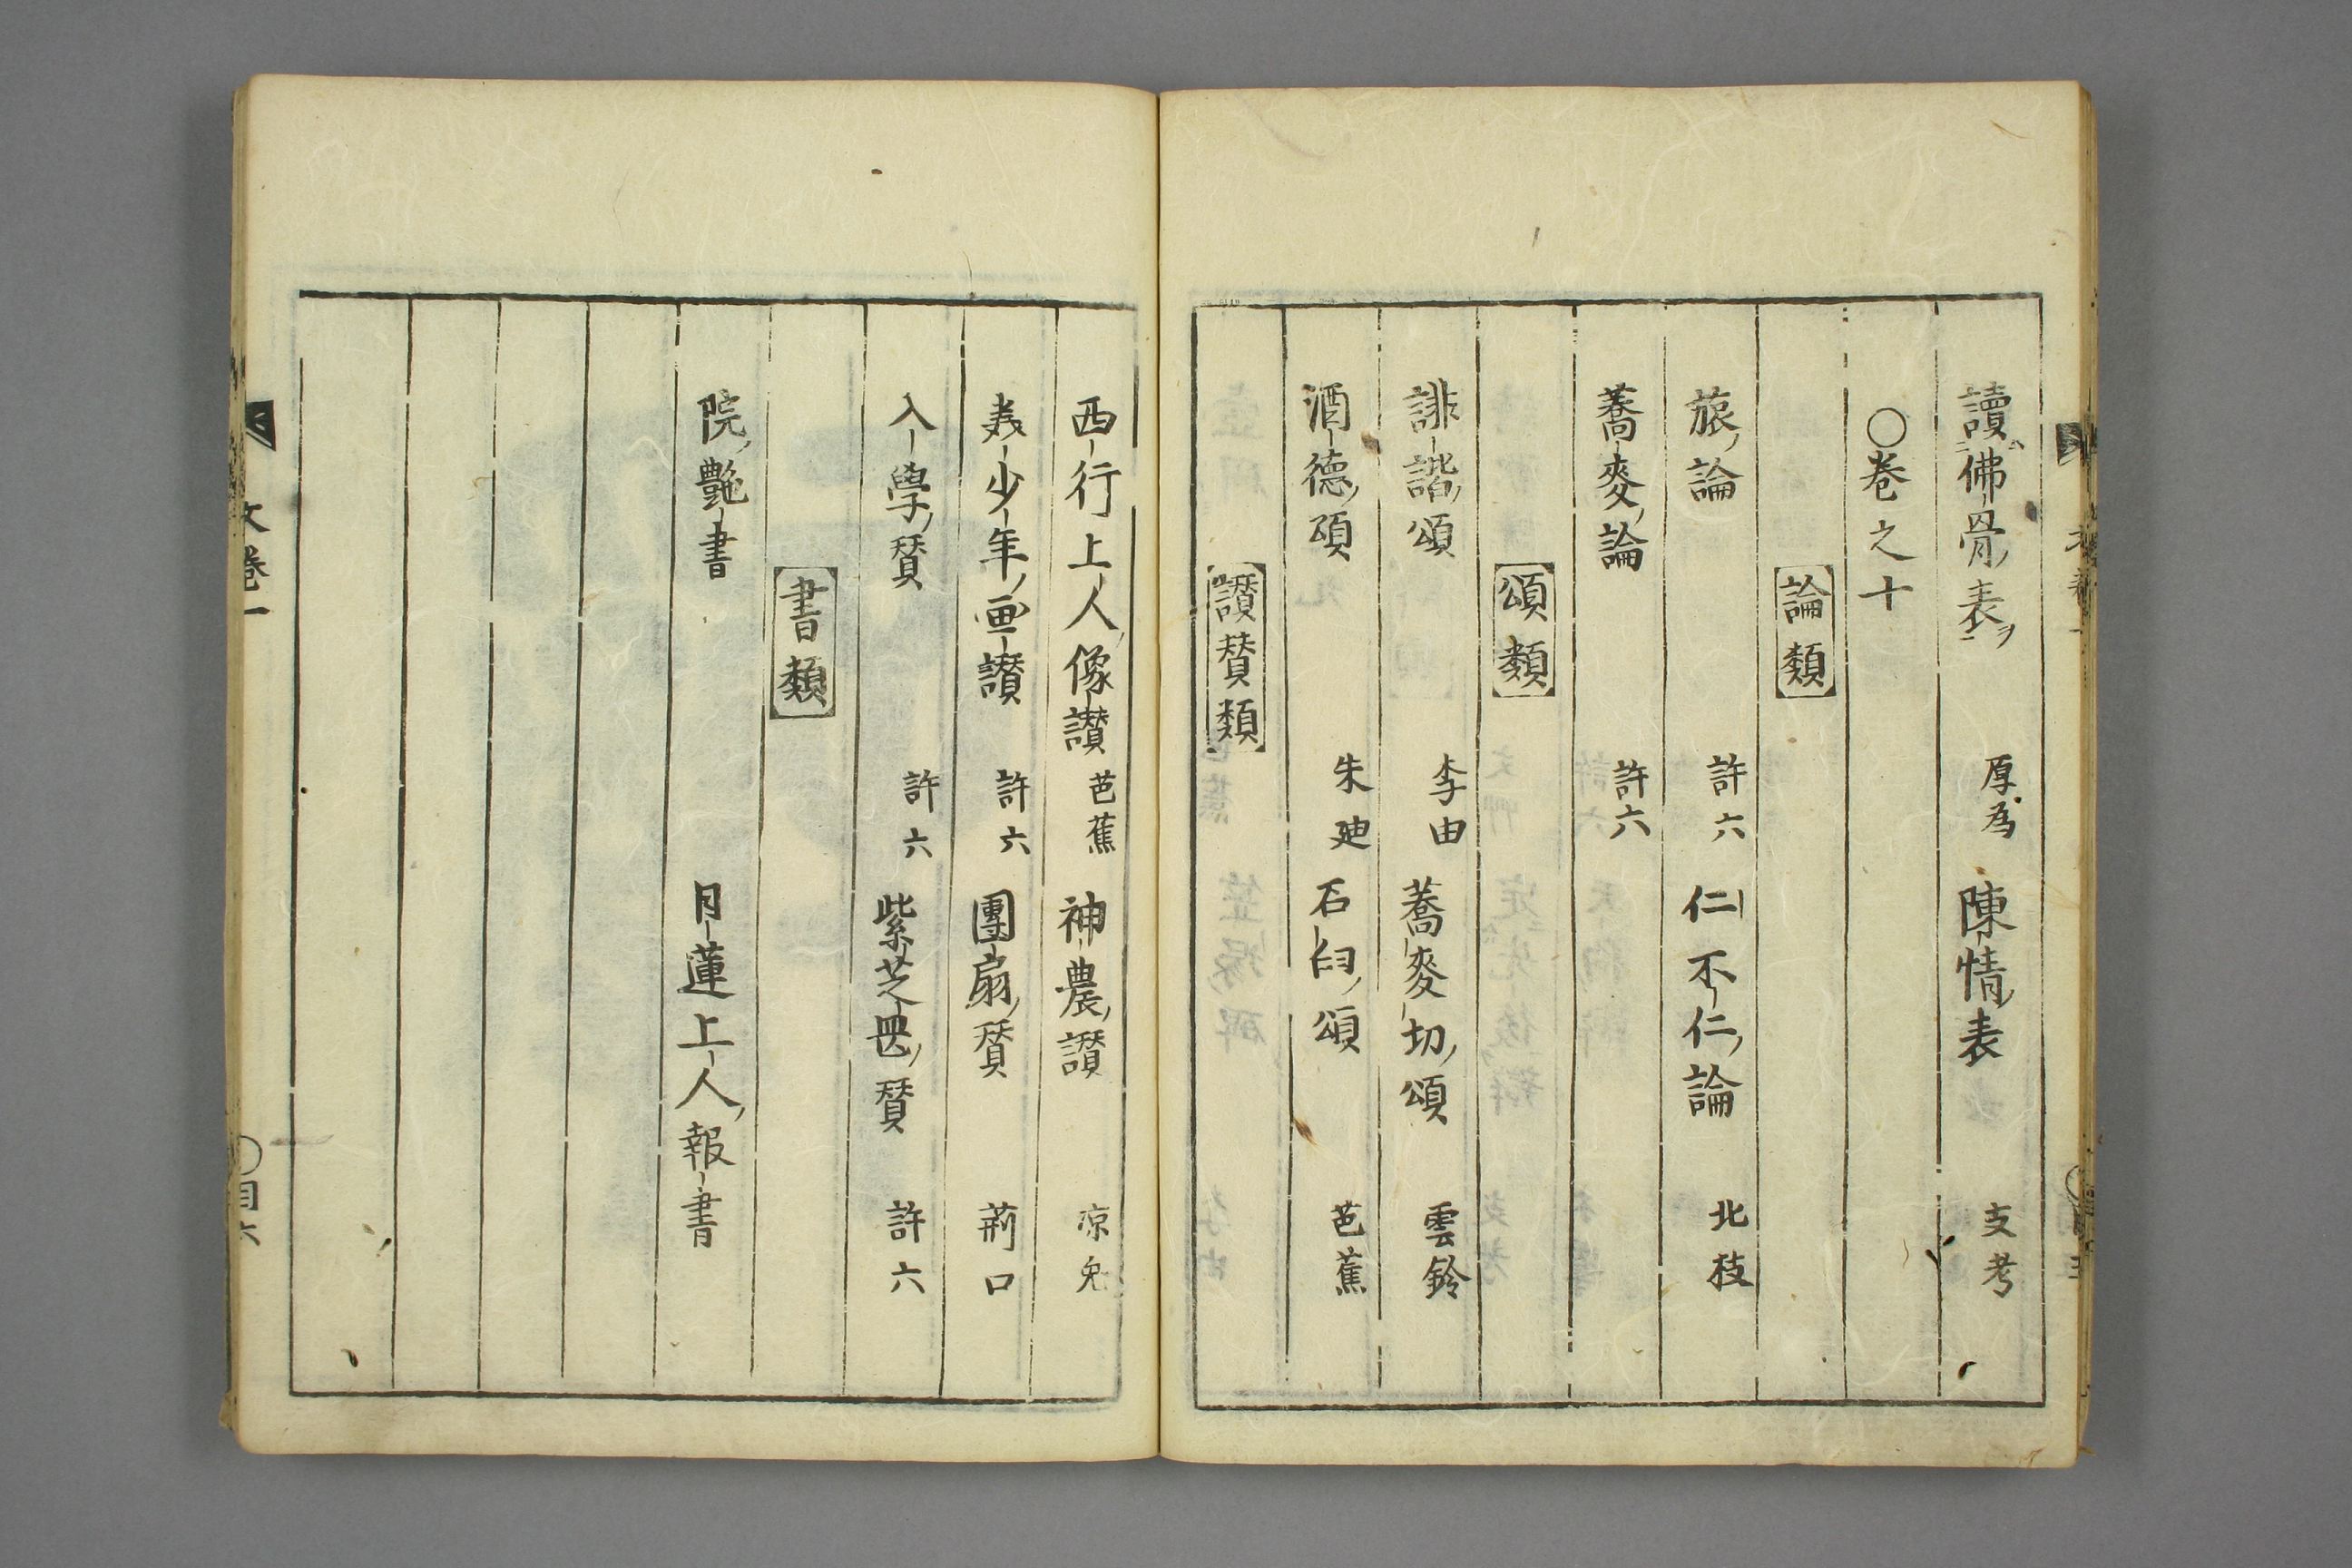 讀佛骨表 厚為 陳情表 支考
○卷之十
論類
旅論 許六 仁不仁論 北枝
蕎麥論 許六
頌類
誹諧頌 李由 蕎麥切頌 雲鈴
酒德頌 朱廸 石臼頌 芭蕉
讚賛類
西行上人像讚 芭蕉 神農讚 凉兔
美少年画讚 許六 團扇賛 荊口
入學賛 許六 紫芝畏賛 許六
書類
院艶書 月蓮上人報書
文卷一 ○目六